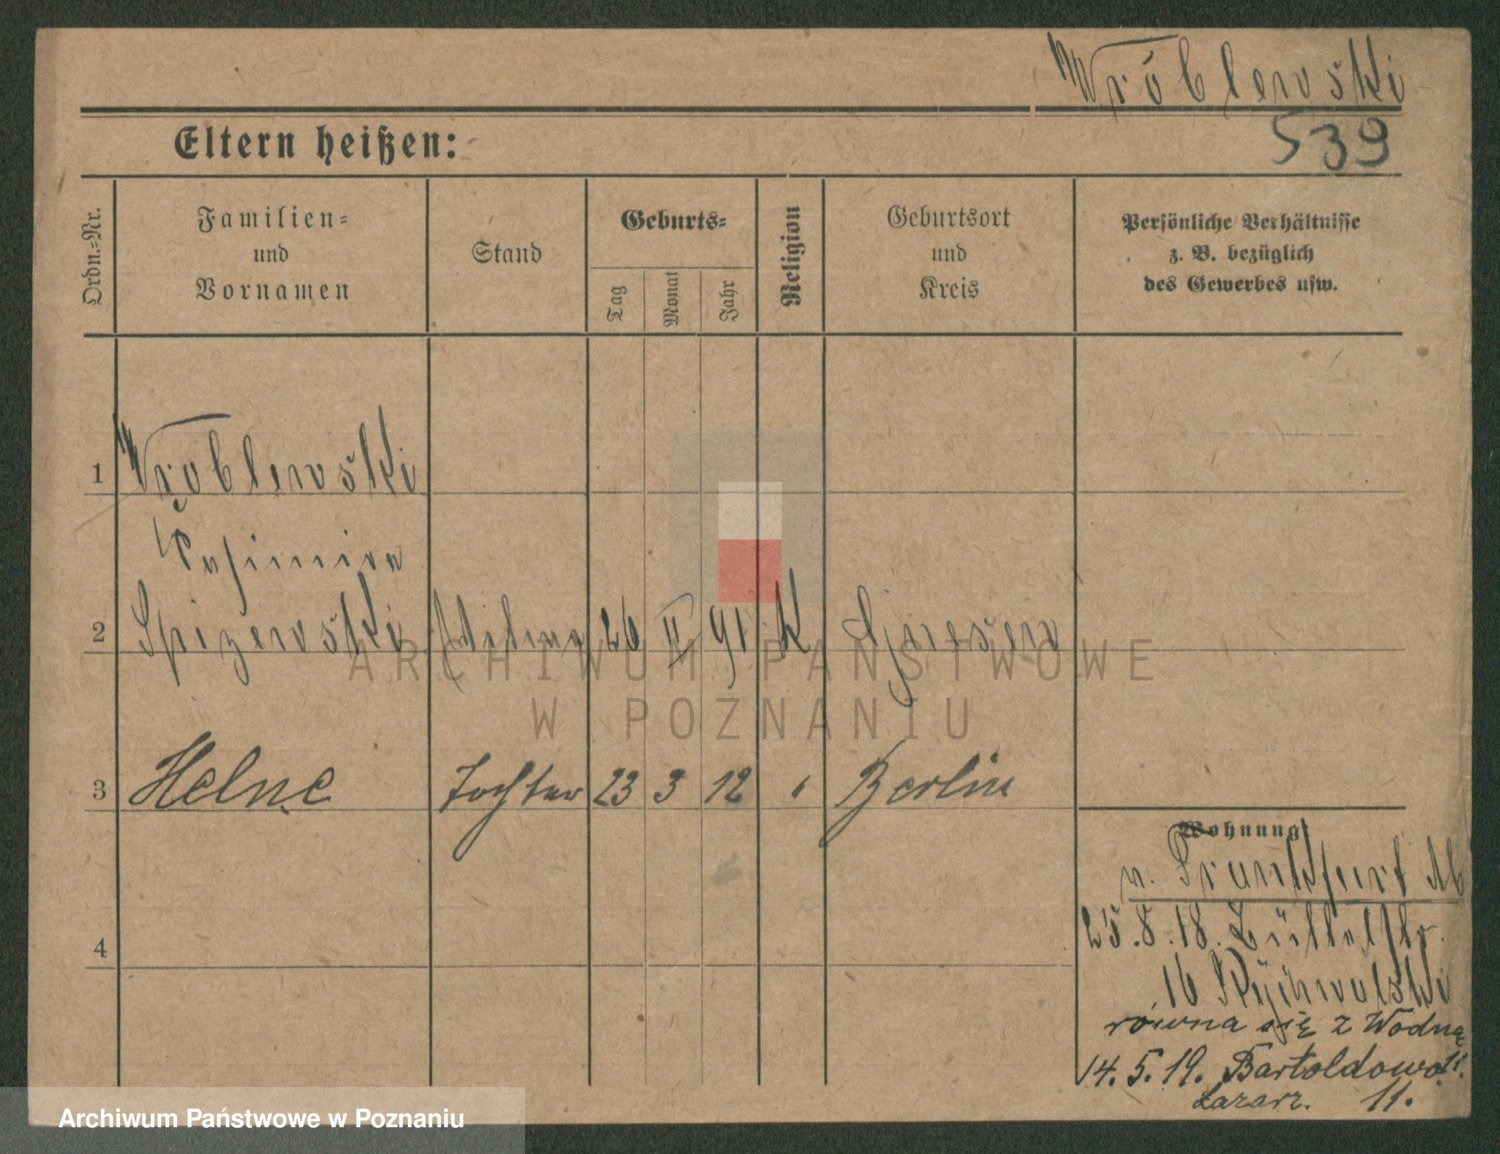 Wróblewski
539
Eltern heißen:
Ordn.-Nr.
Familien-
und
Vornamen
Stand
Geburts-
Tag
Monat
Jahr
Religion
Geburtsort
und
Kreis
Persönliche Verhältnisse
z. B. bezüglich
des Gewerbes usw.
1 Wróblewski
Kasimira
2 Spizewski 26 II 91 K Gnesen
3 Helne Tochter 23 3 12 Berlin
4
Wohnung
n. Frankfurt
25.8.18.
16
równa się z Wodną
14.5.19. Bartoldowo
Łazarz. 11.
ARCHIWUM PAŃSTWOWE
W POZNANIU
Archiwum Państwowe w Poznaniu